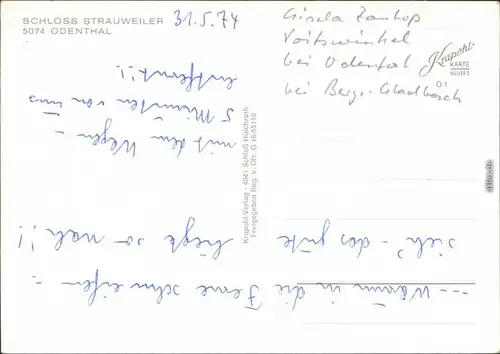 SCHLOSS STRAUWEILER
5074 ODENTHAL
31.5.74
Gisela Zanhop
Voiswinkel
bei Odental
bei Berg.-Gladbach
Krapohl-
KARTE
01
Krapohl-Verlag - 4041 Schloß Hülchrath
Freigegeben Reg. v. Gfr. G
--- Warum in die Ferne schweifen -
sieh' - das gute liegt so nah!!
mit dem Wagen -
5 Minuten von uns
entfernt!!